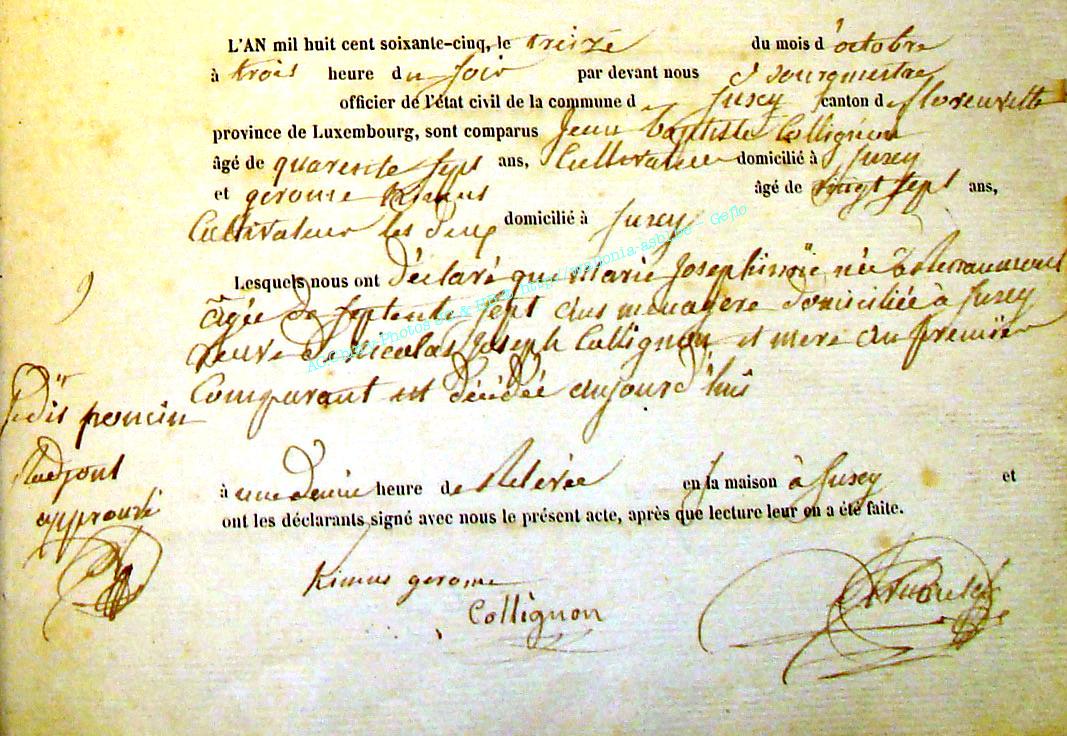 L'AN mil huit cent soixante-cinq, le treize du mois d'octobre
à trois heure du soir par devant nous Bourgmestre
officier de l'état civil de la commune de Juzey canton de florenville
province de Luxembourg, sont comparus Jean Baptiste Collignon
âgé de quarente sept ans, Cultivateur domicilié à Juzey
et gerome Kimus âgé de vingt sept ans,
Cultivateur les deux domicilié à Juzey
Lesquels nous ont déclaré que Marie Joseph née à
âgée de septente sept ans menagere domiciliée à Juzey
veuve de Nicolas Joseph Collignon et mere du premier
Comparant est décédée aujourd'hui
à une demie heure de Relevée en sa maison à Juzey et
ont les déclarants signé avec nous le présent acte, après que lecture leur en a été faite.
Kimus gerome
Collignon
dit poncin
approuvé